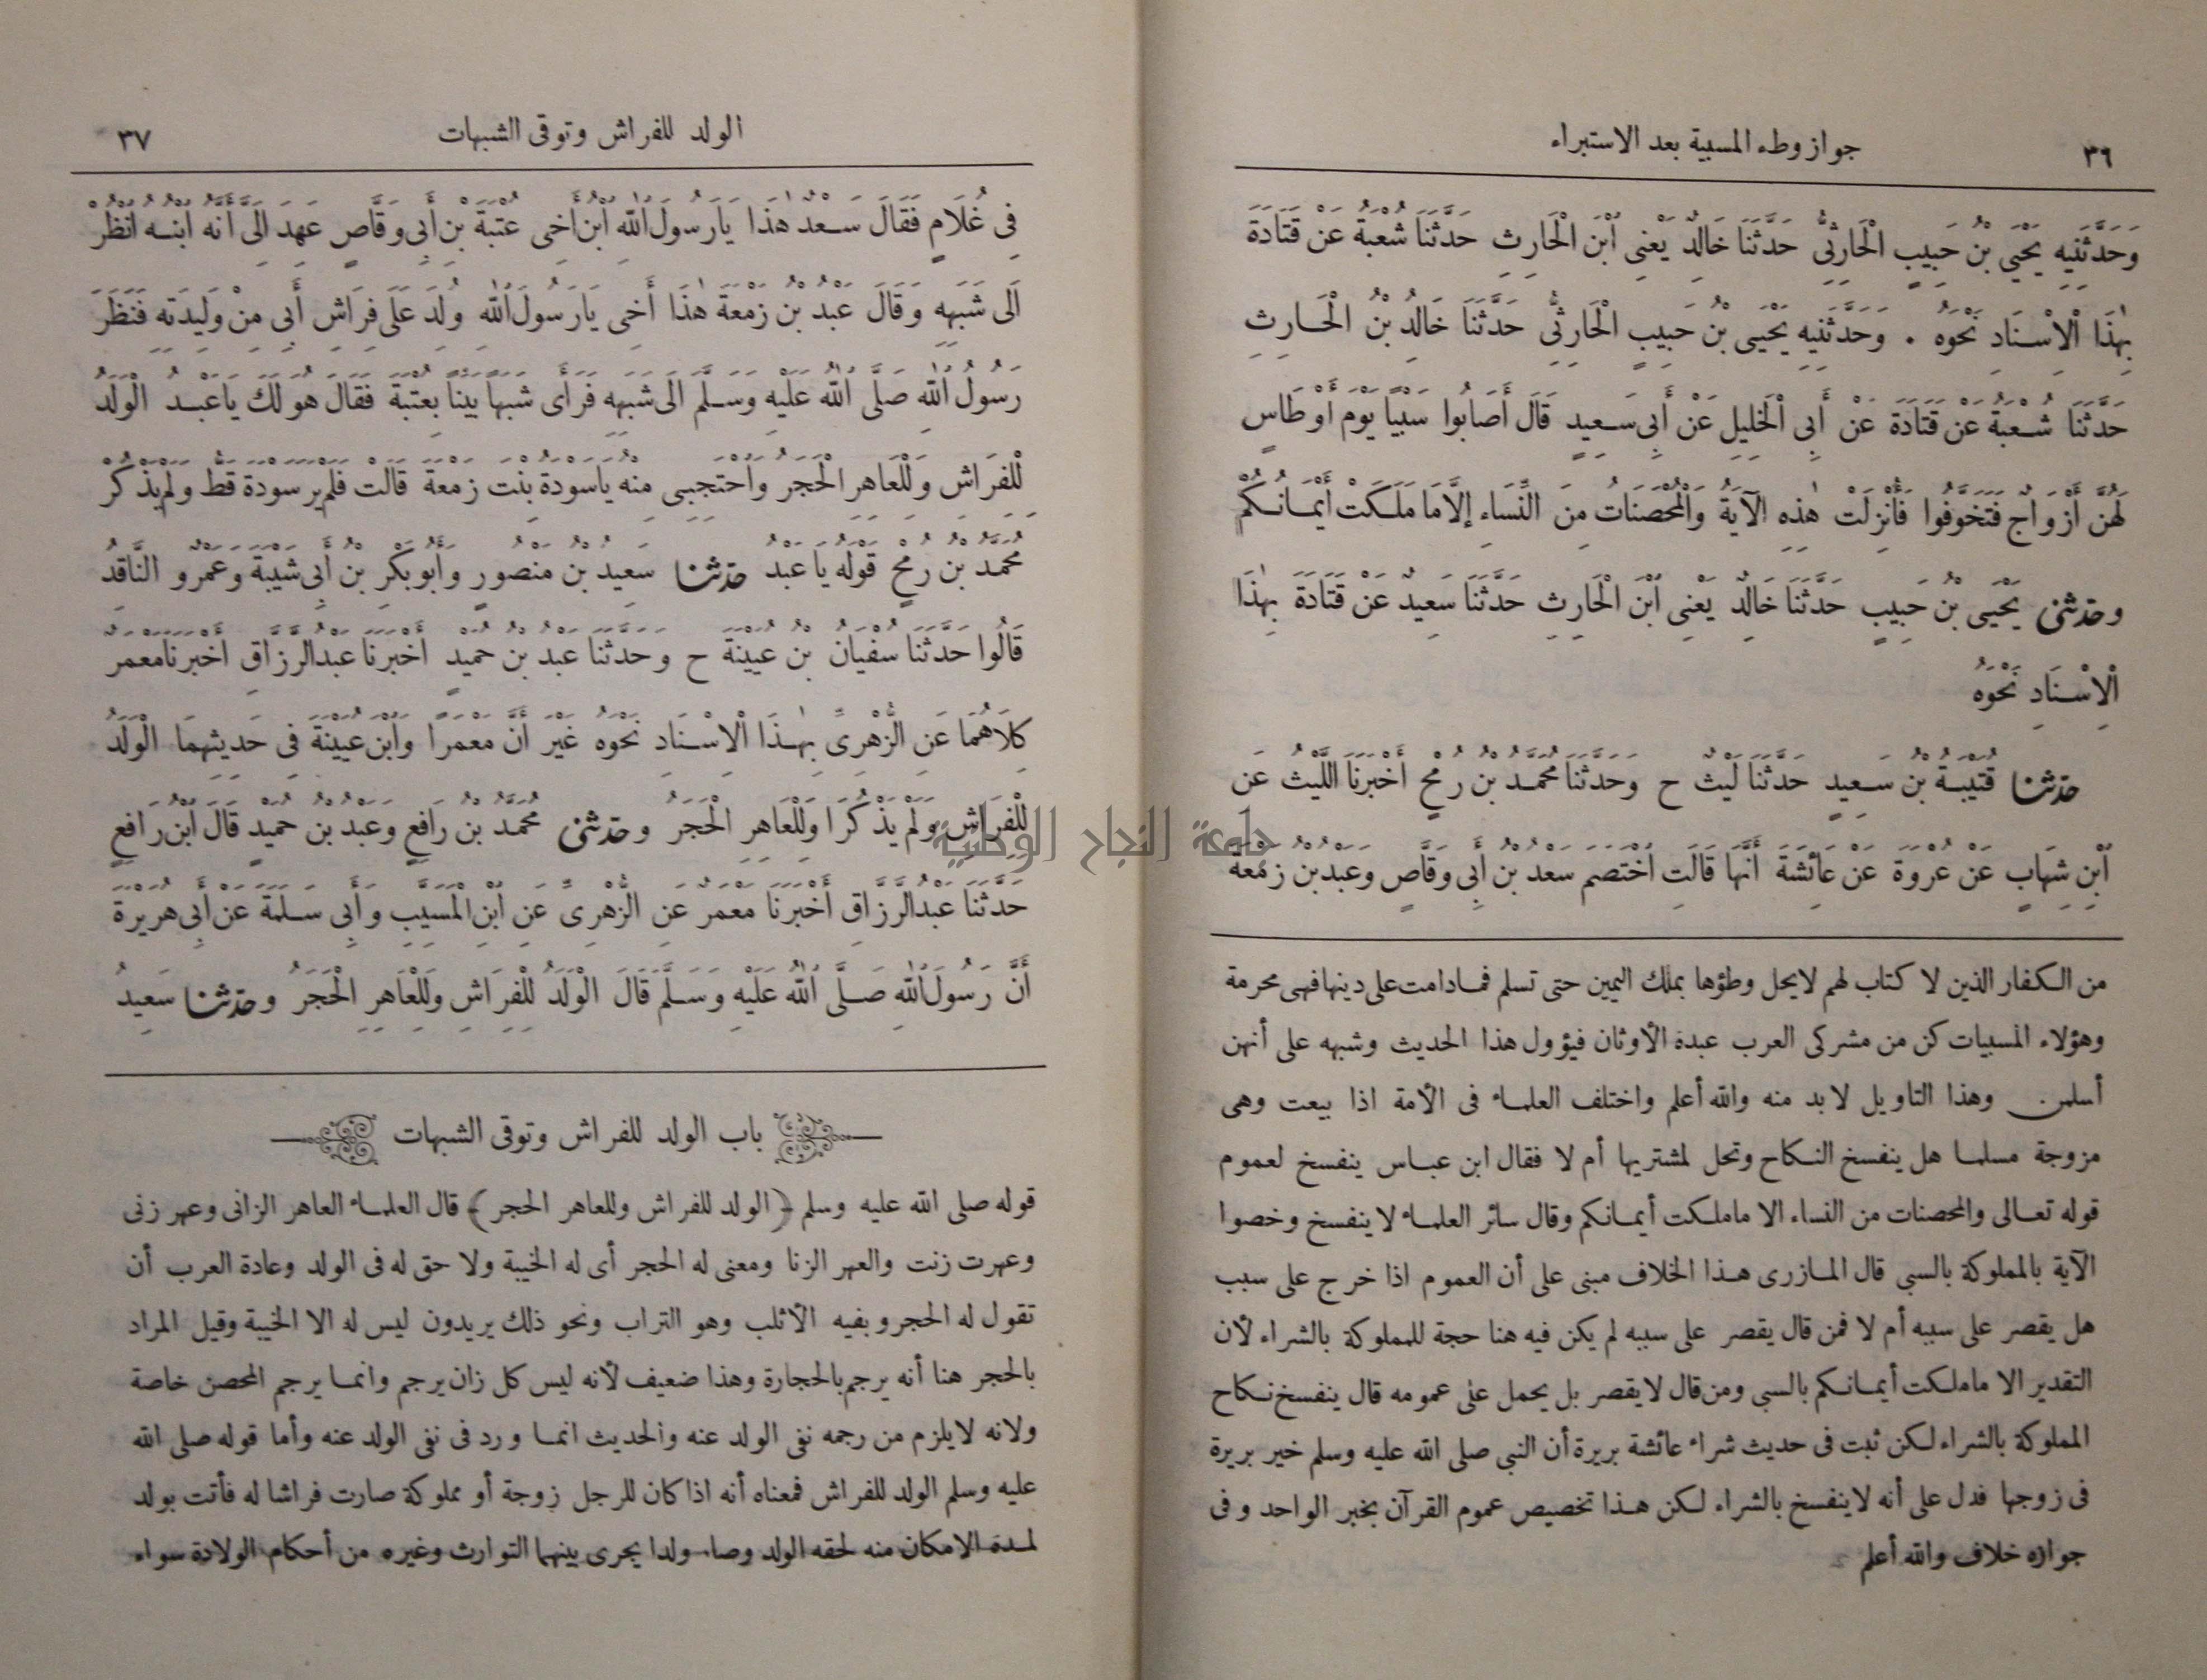 ٣٦
جواز وطء المسبية بعد الاستبراء
وَحَدَّثَنِيهِ يَحْيَى بْنُ حَبِيبٍ الْحَارِثِيُّ حَدَّثَنَا خَالِدٌ يَعْنِى ٱبْنَ الْحَارِثِ حَدَّثَنَا شُعْبَةُ عَنْ قَتَادَةَ
بِهٰذَا الْاِسْنَادِ نَحْوَهُ . وَحَدَّثَنِيهِ يَحْيَى بْنُ حَبِيبٍ الْحَارِثِىُّ حَدَّثَنَا خَالِدُ بْنُ الْحَارِثِ
حَدَّثَنَا شُعْبَةُ عَنْ قَتَادَةَ عَنْ أَبِى الْخَلِيلِ عَنْ أَبِى سَعِيدٍ قَالَ أَصَابُوا سَبْيًا يَوْمَ أَوْطَاسٍ
لَهُنَّ أَزْوَاجٌ فَتَخَوَّفُوا فَأُنْزِلَتْ هٰذِهِ الْآيَةُ وَالْمُحْصَنَاتُ مِنَ النِّسَاءِ إِلَّا مَا مَلَكَتْ أَيْمَانُكُمْ
وحدثنى يَحْيَى بْنُ حَبِيبٍ حَدَّثَنَا خَالِدٌ يَعْنِى ٱبْنَ الْحَارِثِ حَدَّثَنَا سَعِيدٌ عَنْ قَتَادَةَ بِهٰذَا
الْاِسْنَادِ نَحْوَهُ
حدثنا قُتَيْبَةُ بْنُ سَعِيدٍ حَدَّثَنَا لَيْثٌ ح وَحَدَّثَنَا مُحَمَّدُ بْنُ رُمْحٍ أَخْبَرَنَا اللَّيْثُ عَنِ
ٱبْنِ شِهَابٍ عَنْ عُرْوَةَ عَنْ عَائِشَةَ أَنَّهَا قَالَتِ ٱخْتَصَمَ سَعْدُ بْنُ أَبِى وَقَّاصٍ وَعَبْدُ بْنُ زَمْعَةَ
من الكفار الذين لا كتاب لهم لا يحل وطؤها بملك اليمين حتى تسلم فمادامت على دينها فهى محرمة
وهؤلاء المسبيات كن من مشركى العرب عبدة الأوثان فيؤول هذا الحديث وشبهه على أنهن
أسلمن وهذا التاويل لابد منه والله أعلم واختلف العلماء فى الأمة اذا بيعت وهى
مزوجة مسلما هل ينفسخ النكاح وتحل لمشتريها أم لا فقال ابن عباس ينفسخ لعموم
قوله تعالى والمحصنات من النساء الا ماملكت أيمانكم وقال سائر العلماء لا ينفسخ وخصوا
الآية بالمملوكة بالسبى قال المازرى هذا الخلاف مبنى على أن العموم اذا خرج على سبب
هل يقصر على سببه أم لا فمن قال يقصر على سببه لم يكن فيه هنا حجة للمملوكة بالشراء لأن
التقدير الا ماملكت أيمانكم بالسبى ومن قال لا يقصر بل يحمل على عمومه قال ينفسخ نكاح
المملوكة بالشراء لكن ثبت فى حديث شراء عائشة بريرة أن النبى صلى الله عليه وسلم خير بريرة
فى زوجها فدل على أنه لا ينفسخ بالشراء لكن هذا تخصيص عموم القرآن بخبر الواحد وفى
جوازه خلاف والله أعلم
الولد للفراش وتوقى الشبهات
٣٧
فِى غُلَامٍ فَقَالَ سَعْدٌ هٰذَا يَارَسُولَ ٱللّٰهِ ٱبْنُ أَخِى عُتْبَةَ بْنِ أَبِى وَقَّاصٍ عَهِدَ إِلَىَّ أَنَّهُ ٱبْنُهُ ٱنْظُرْ
اِلَى شَبَهِهِ وَقَالَ عَبْدُ بْنُ زَمْعَةَ هٰذَا أَخِى يَارَسُولَ ٱللّٰهِ وُلِدَ عَلَى فِرَاشِ أَبِى مِنْ وَلِيدَتِهِ فَنَظَرَ
رَسُولُ ٱللّٰهِ صَلَّى ٱللّٰهُ عَلَيْهِ وَسَلَّمَ اِلَى شَبَهِهِ فَرَأَى شَبَهًا بَيِّنًا بِعُتْبَةَ فَقَالَ هُوَ لَكَ يَا عَبْدُ الْوَلَدُ
لِلْفِرَاشِ وَلِلْعَاهِرِ الْحَجَرُ وَٱحْتَجِبِى مِنْهُ يَاسَوْدَةُ بِنْتَ زَمْعَةَ قَالَتْ فَلَمْ يَرَ سَوْدَةَ قَطُّ وَلَمْ يَذْكُرْ
مُحَمَّدُ بْنُ رُمْحٍ قَوْلَهُ يَا عَبْدُ حدثنا سَعِيدُ بْنُ مَنْصُورٍ وَأَبُو بَكْرِ بْنُ أَبِى شَيْبَةَ وَعَمْرٌو النَّاقِدُ
قَالُوا حَدَّثَنَا سُفْيَانُ بْنُ عُيَيْنَةَ ح وَحَدَّثَنَا عَبْدُ بْنُ حُمَيْدٍ أَخْبَرَنَا عَبْدُ الرَّزَّاقِ أَخْبَرَنَا مَعْمَرٌ
كِلَاهُمَا عَنِ الزُّهْرِىِّ بِهٰذَا الْاِسْنَادِ نَحْوَهُ غَيْرَ أَنَّ مَعْمَرًا وَٱبْنَ عُيَيْنَةَ فِى حَدِيثِهِمَا الْوَلَدُ
لِلْفِرَاشِ وَلَمْ يَذْكُرَا وَلِلْعَاهِرِ الْحَجَرُ وحدثنى مُحَمَّدُ بْنُ رَافِعٍ وَعَبْدُ بْنُ حُمَيْدٍ قَالَ ٱبْنُ رَافِعٍ
حَدَّثَنَا عَبْدُ الرَّزَّاقِ أَخْبَرَنَا مَعْمَرٌ عَنِ الزُّهْرِىِّ عَنِ ٱبْنِ الْمُسَيَّبِ وَأَبِى سَلَمَةَ عَنْ أَبِى هُرَيْرَةَ
أَنَّ رَسُولَ ٱللّٰهِ صَلَّى ٱللّٰهُ عَلَيْهِ وَسَلَّمَ قَالَ الْوَلَدُ لِلْفِرَاشِ وَلِلْعَاهِرِ الْحَجَرُ وحدثنا سَعِيدُ
باب الولد للفراش وتوقى الشبهات
قوله صلى الله عليه وسلم ﴿الولد للفراش وللعاهر الحجر﴾ قال العلماء العاهر الزانى وعهر زنى
وعهرت زنت والعهر الزنا ومعنى له الحجر أى له الخيبة ولا حق له فى الولد وعادة العرب أن
تقول له الحجر وبفيه الأثلب وهو التراب ونحو ذلك يريدون ليس له الا الخيبة وقيل المراد
بالحجر هنا أنه يرجم بالحجارة وهذا ضعيف لأنه ليس كل زان يرجم وانما يرجم المحصن خاصة
ولانه لا يلزم من رجمه نفى الولد عنه والحديث انما ورد فى نفى الولد عنه وأما قوله صلى الله
عليه وسلم الولد للفراش فمعناه أنه اذا كان للرجل زوجة أو مملوكة صارت فراشا له فأتت بولد
لمدة الامكان منه لحقه الولد وصار ولدا يجرى بينهما التوارث وغيره من أحكام الولادة سواء
جامعة النجاح الوطنية